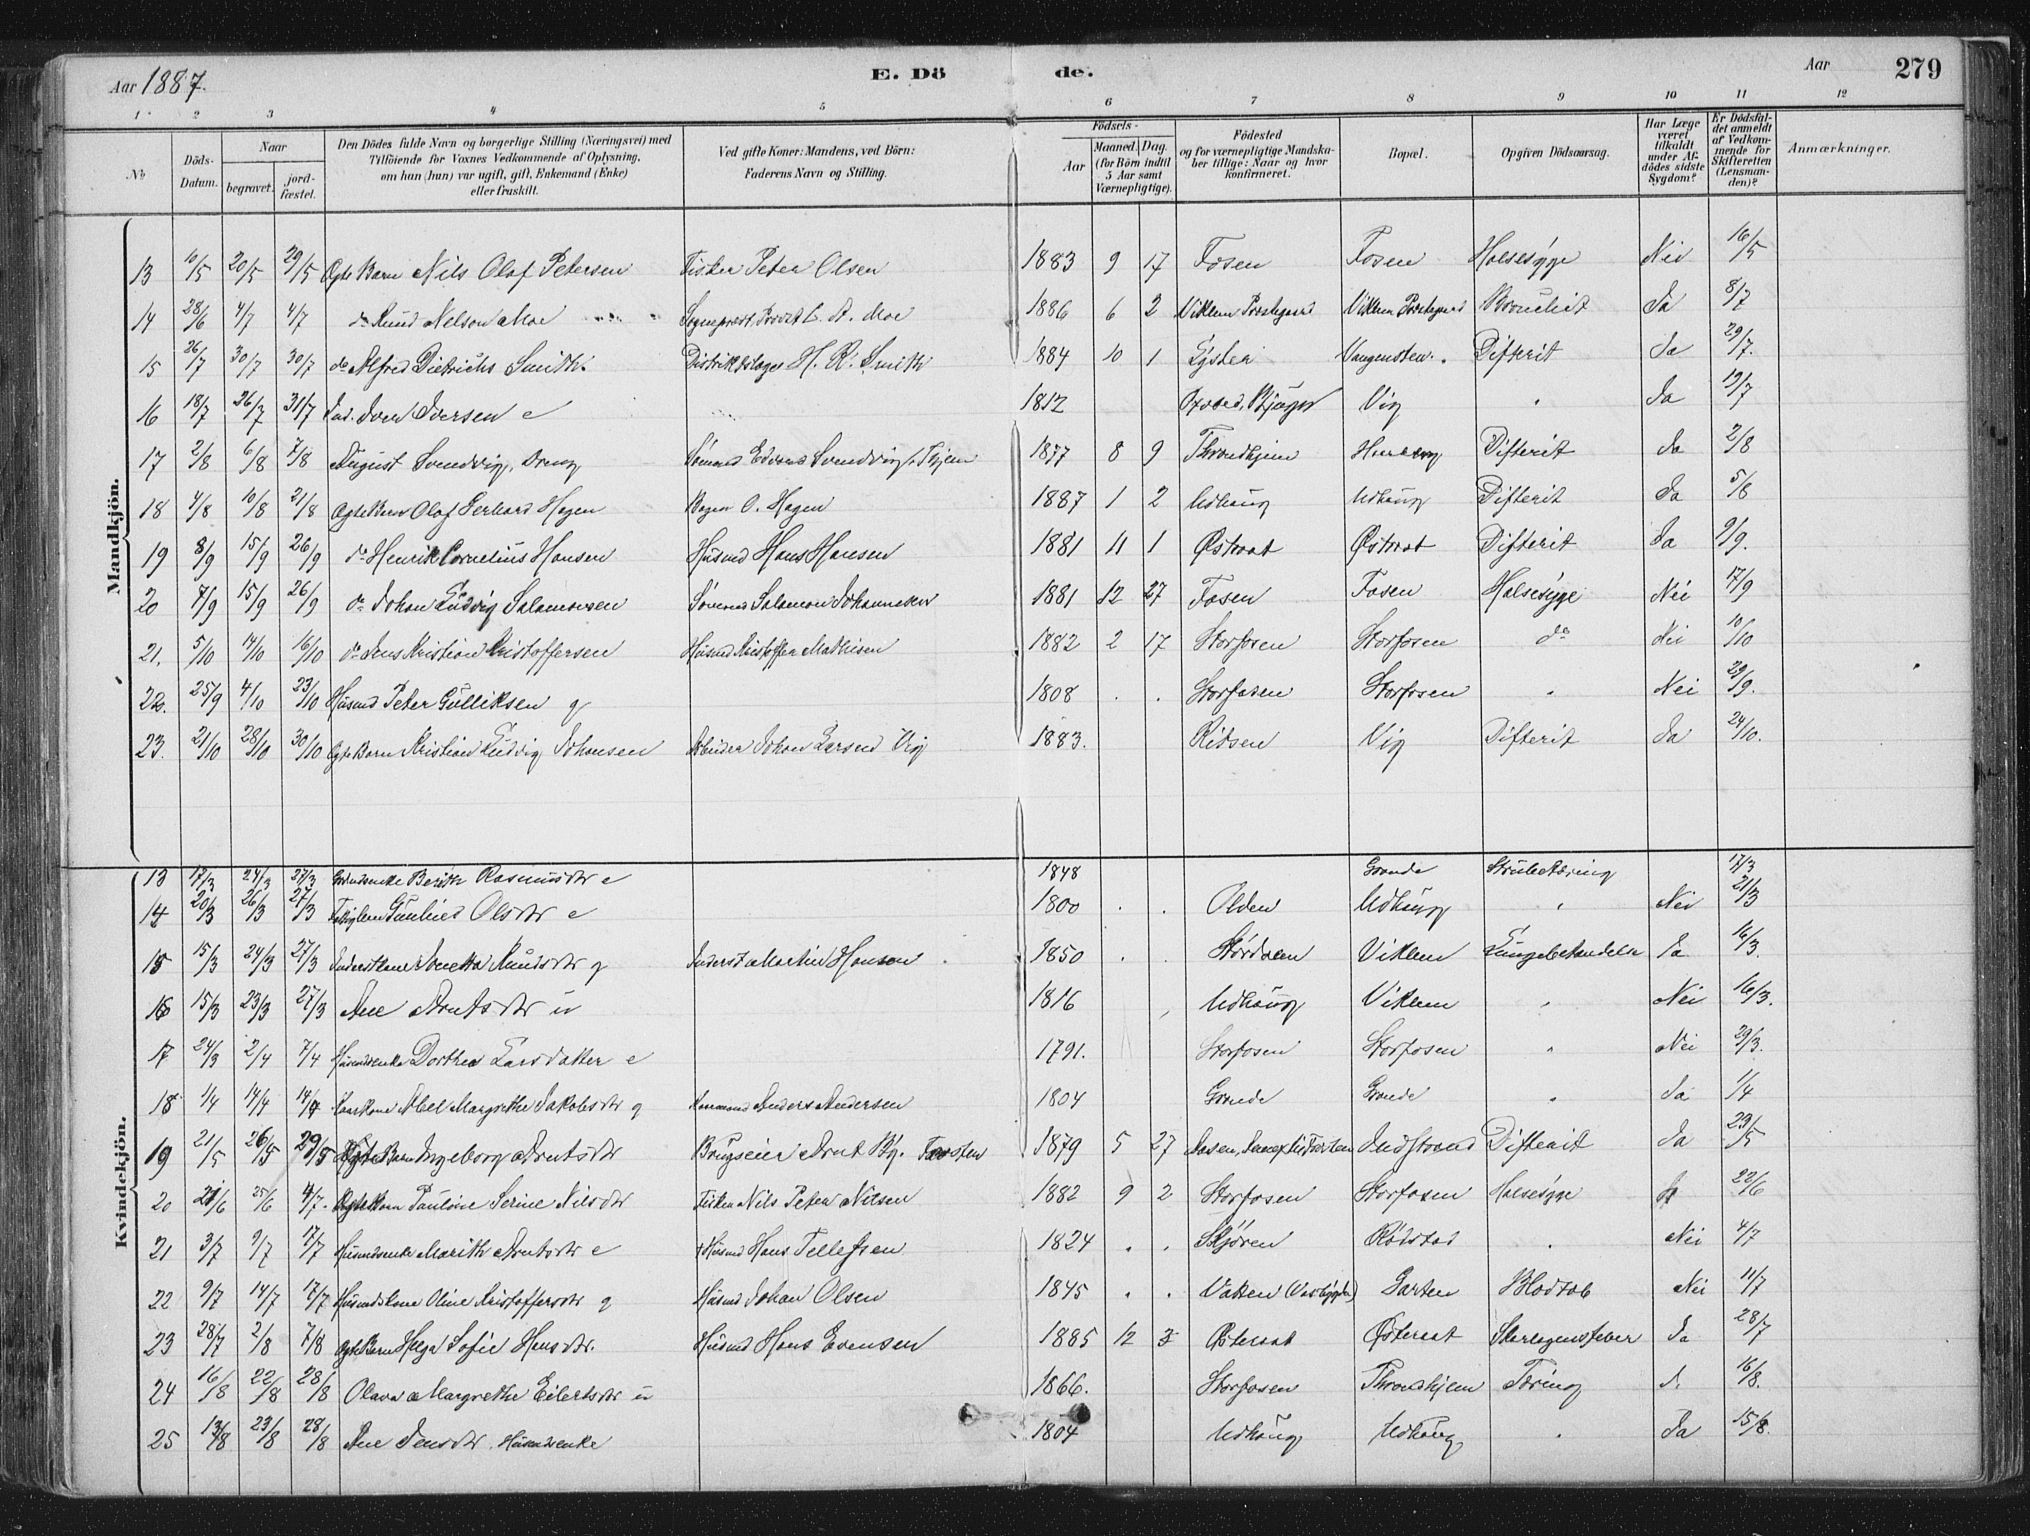 Aar 1887. E. Dö de. Aar 279
1 2 3 4 5 6 7 8 9 10 11 12
No
Döds-Datum.
Naar
begravet.
jord-fæstet.
Den Dödes fulde Navn og borgerlige Stilling (Næringsvei) med
Tilföiende for Voxnes Vedkommende af Oplysning,
om han (hun) var ugift, gift, Enkemand (Enke)
eller fraskilt.
Ved gifte Koner: Mandens, ved Börn:
Faderens Navn og Stilling.
Födsels-
Aar
Maaned. Dag.
(for Börn indtil
5 Aar samt
Værnepligtige).
Födested
og for værnepligtige Mandska-
ber tillige: Naar og hvor
konfirmeret.
Bopæl.
Opgiven Dödsaarsag.
Har Læge
været
tilkaldt
under Af-
dödes sidste
Sygdom?
Er Dödsfal-
det anmeldt
af Vedkom-
mende for
Skifteretten
(Lensman-
den)?
Anmærkninger.
Mandkjön.
13 10/5 20/5 29/5 Ægte Barn Nils Olaf Petersen Fisker Peter Olsen 1883 9 17 Fosen Fosen Halsesyge Nei 16/5
14 28/6 4/7 4/7 do Knud Nelson Moe Sognepræst, Provst L. A. Moe 1886 6 2 Viklem Præstegaard Viklem Præstegaard Bronchit Ja 8/7
15 26/7 30/7 30/7 do Alfred Dietrichs Smith. Distriktslæge H. R. Smith 1884 10 1 Lyster Vangensten. Difterit Ja 29/7.
16 18/7 26/7 31/7 Ind. Iver Iversen e 1812 Bjugn Vig Ja 19/7
17 2/8 6/8 7/8 August Svendvig, Dreng Sömand Edvard Svendvig, Thjem 1877 8 9 Throndhjem Difterit Ja 2/8
18 4/8 10/8 21/8 Ægte Barn Olaf Gerhard Hagen Bager O. Hagen 1887 1 2 Udhaug Udhaug Difterit Ja 5/8
19 8/9 15/9 26/9 do Henrik Cornelius Hansen Husmd Hans Hansen 1881 11 1 Østraat Østraat Difterit Ja 9/9.
20 7/9 15/9 26/9 do Johan Ludvig Salamonsen Sömand Salamon Johannesen 1881 12 27 Fosen Fosen Halsesyge Nei 17/9
21. 5/10 14/10 16/10 do Jens Kristian Kristoffersen Husmd Kristoffer Mathisen 1882 2 17 Storfosen Storfosen do Nei 10/10
22. 25/9 4/10 23/10 Husmd Peter Gulliksen g 1808 . . Storfosen Storfosen Nei 29/9.
23. 21/10 28/10 30/10 Ægte Barn Kristian Ludvig Johansen Arbeider Johan Larsen Vig 1883. Rissen Vig Difterit Ja 24/10.
Kvindekjön.
13 17/3 24/3 27/3 Berith Rasmusdtr e 1848 Grande Strubetæring 17/3
14 20/3 26/3 27/3 Fattiglem Gunhild Olsdtr e 1800 . . Olden Udhaug Nei 21/3
15 15/3 24/3 27/3 Inderstkone Knudsdtr g Inderst Martin Hansen 1850 . . Stördalen Viklem Lungebetændelse Ja 16/3.
16 15/3 23/3 27/3 Ane Arntsdtr u 1816 Udhaug Viklem Nei 16/3.
17 24/3 2/4 7/4 Husmdsenke Dorthea Larsdatter e 1791. Storfosen Storfosen Nei 29/3.
18 1/4 14/4 14/4 Kaarkone Abel Margrethe Jakobsdtr g Kaarmand Anders Andersen 1804 Grande Grande Ja 1/4
19 21/5 26/5 29/5 Ægte Barn Ingeborg Arntsdtr Brugseier Arnt By. 1879 5 27 Indstrand Difterit Ja 23/5
20 21/6 25/6 4/7. Ægte Barn Pauline Serine Nilsdtr Fisker Nils Peter Nilsen 1882 9 2 Storfosen Storfosen Halsesyge Ja 22/6
21 3/7 9/7 17/7 Husmdsenke Marith Arntsdtr e +Husmd Hans Tellefsen 1824 . . Skjören Rödstad Nei 4/7
22 9/7 14/7 17/7 Husmdskone Oline Kristoffersdtr g Husmd Johan Olsen 1845 . . Garten Blodtab Nei 11/7
23 28/7 2/8 7/8 Ægte Barn Helga Sofie Hansdtr. Husmd Hans Evensen 1885 12 3 Østeraat Østeraat Skarlagensfeber Ja 28/7
24 16/8 22/8 28/8 Olava Margrethe Eilertsdtr u 1866. Storfosen Throndhjem Tæring d. 16/8.
25 13/8 23/8 28/8 Ane Jensdtr Husmdsenke 1804 Udhaug Udhaug Ja 15/8.